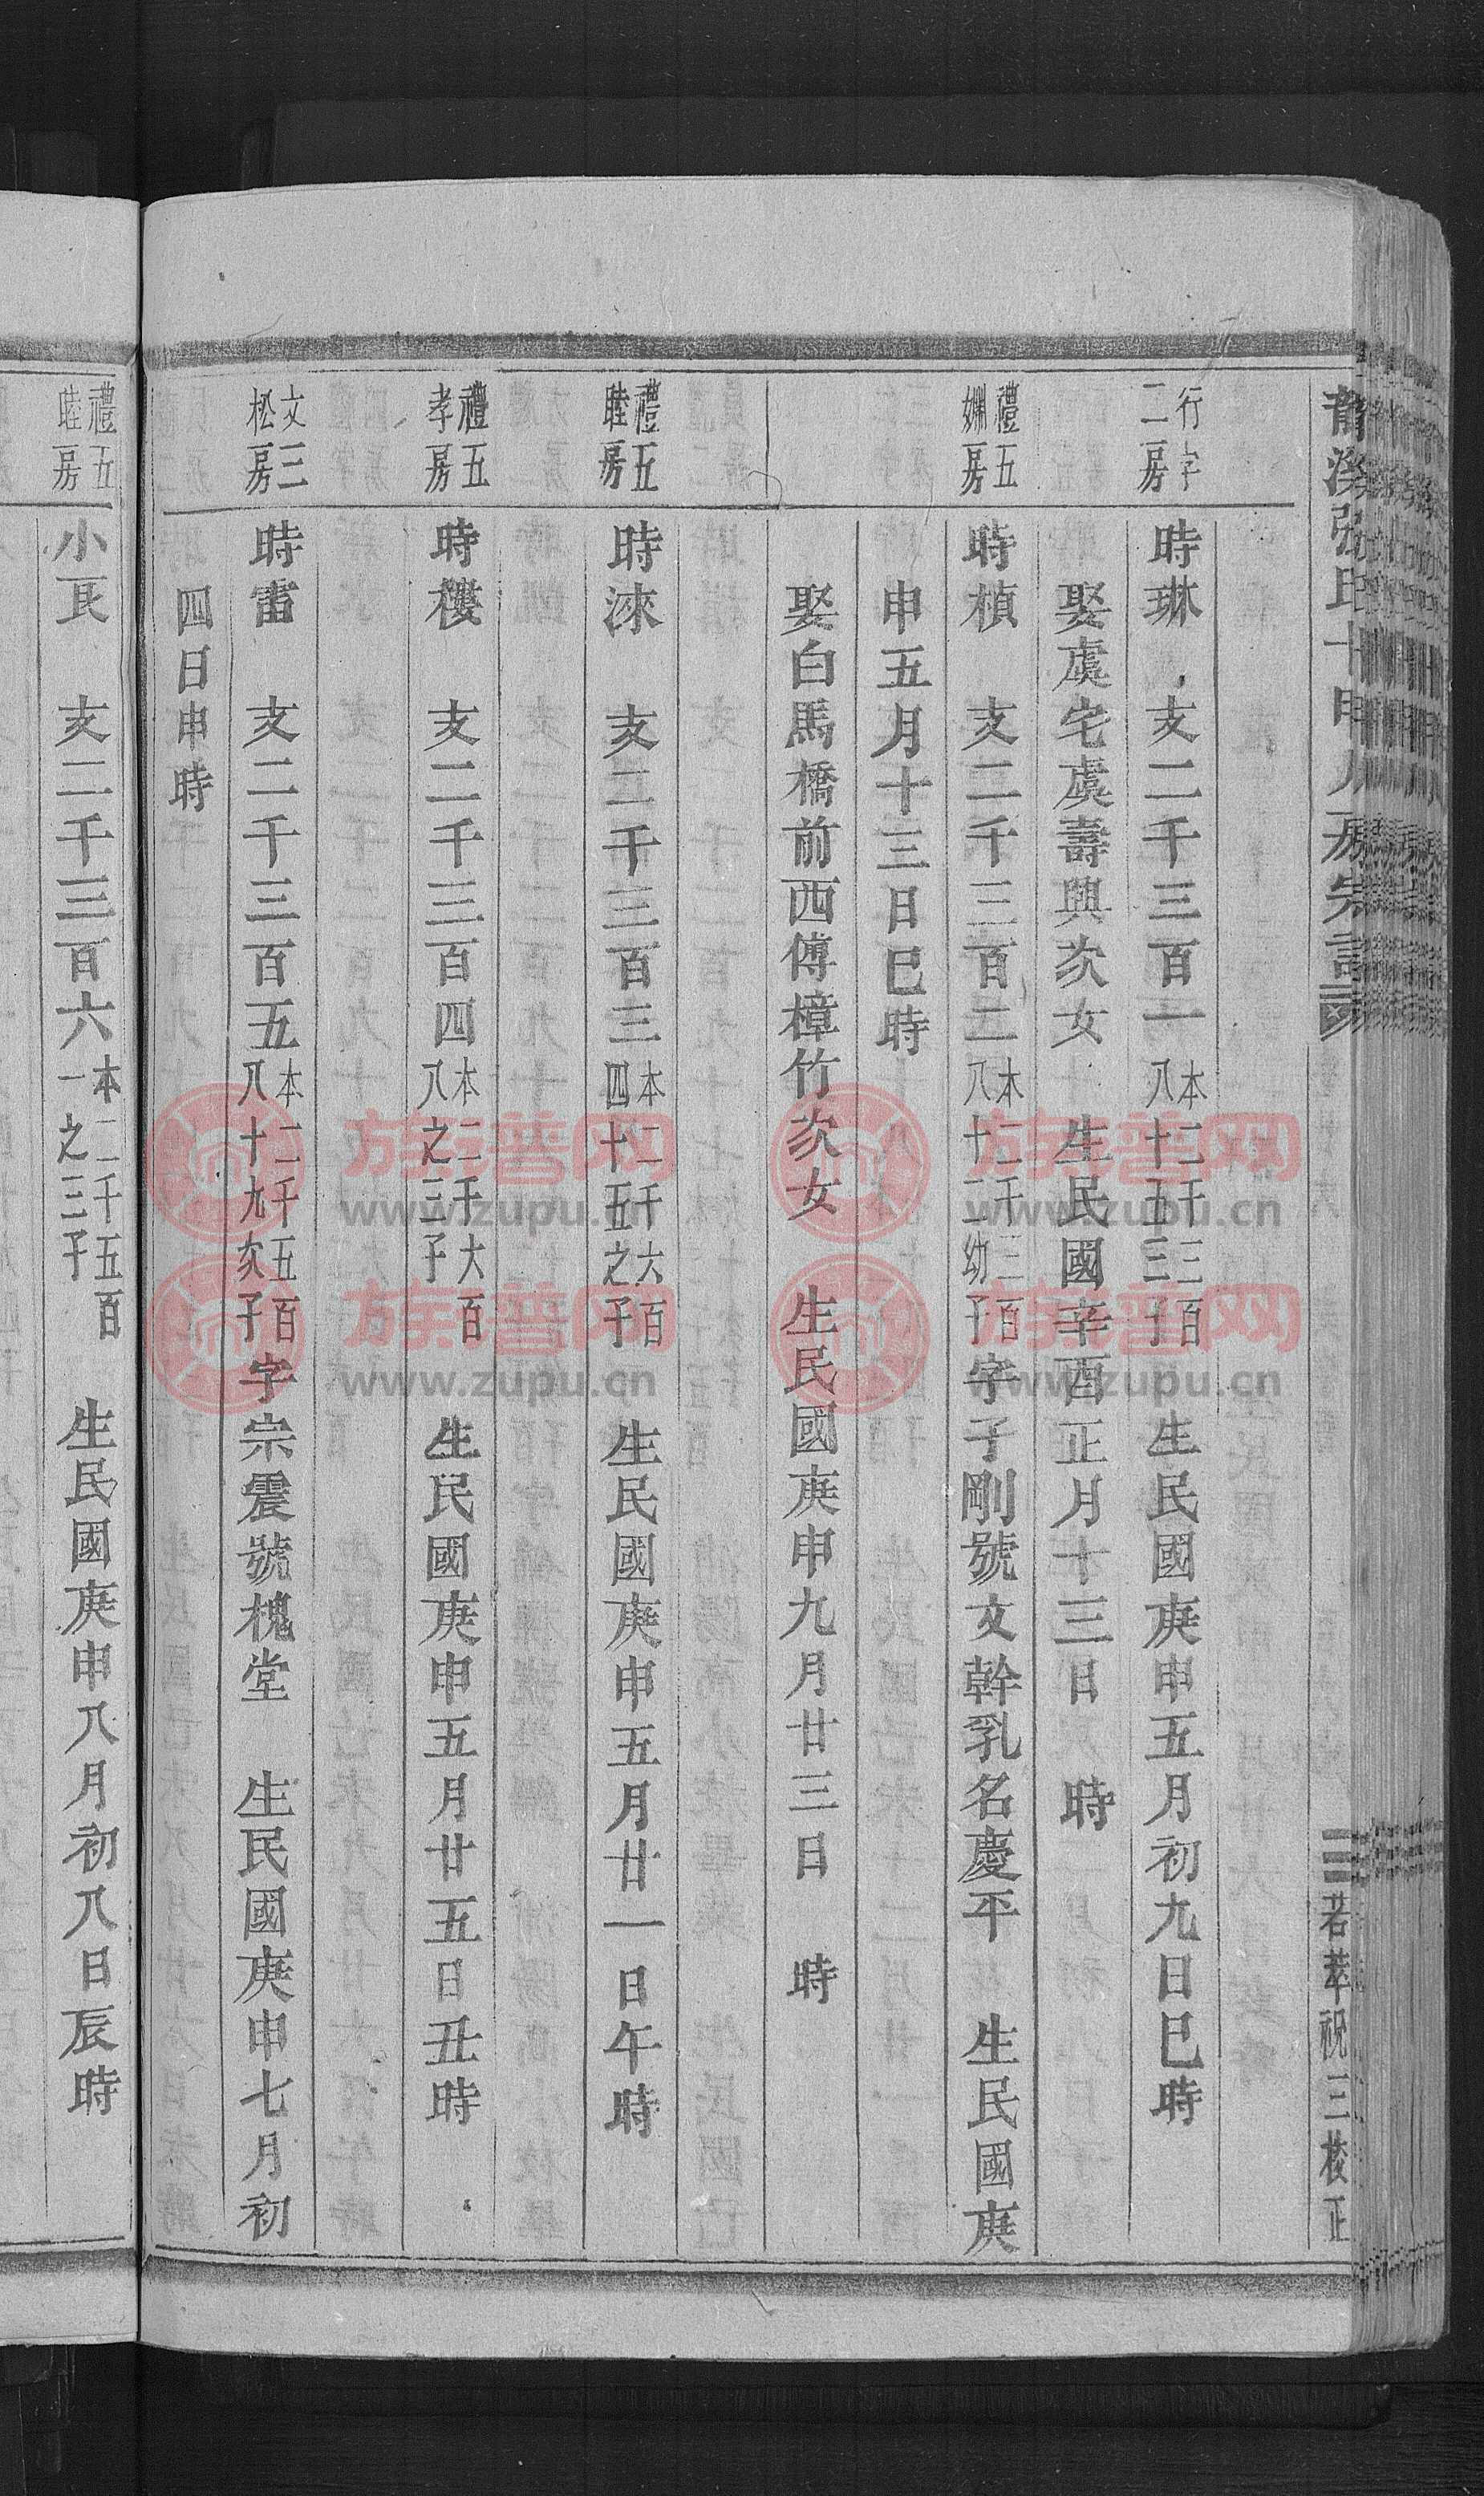 行字二房
時琳 亥二千三百一 本二千三百八十五三子 生民國庚申五月初九日巳時
娶虞宅虞壽興次女 生民國辛酉正月十三日 時
禮五婣房
時楨 亥二千三百二 本二千三百八十二幼子 字子剛號文幹乳名慶平 生民國庚
申五月十三日巳時
娶白馬橋前西傅樟竹次女 生民國庚申九月廿三日 時
禮五睦房
時淶 亥二千三百三 本二千六百四十五之子 生民國庚申五月廿一日午時
禮五孝房
時樓 亥二千三百四 本二千六百八之三子 生民國庚申五月廿五日丑時
文三松房
時雷 亥二千三百五 本二千五百八十九次子 字宗震號槐堂 生民國庚申七月初
四日申時
禮五睦房
小艮 亥二千三百六 本二千五百一之三子 生民國庚申八月初八日辰時
若萃祝三校正
族谱网
www.zupu.cn
族谱网
www.zupu.cn
族谱网
www.zupu.cn
族谱网
www.zupu.cn